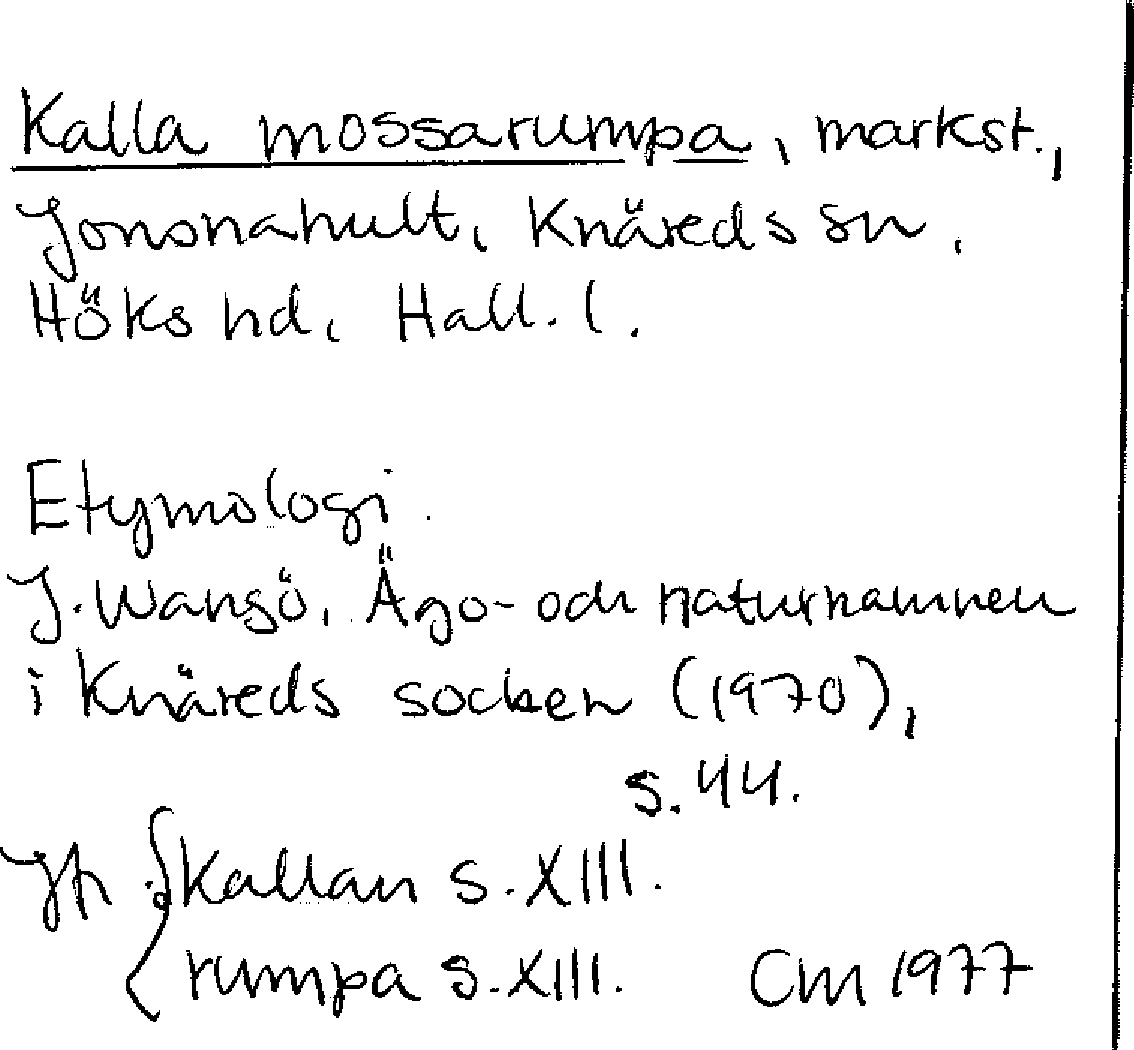 Kalla mossarumpa, markst.,
Jonsnahult, Knäreds sn,
Höks hd, Hall. l.
Etymologi.
J. Wangö, Ägo- och naturnamnen
i Knäreds socken (1970),
s. 44.
Jfr Kallan s. XIII.
rumpa s. XIII. CM 1977